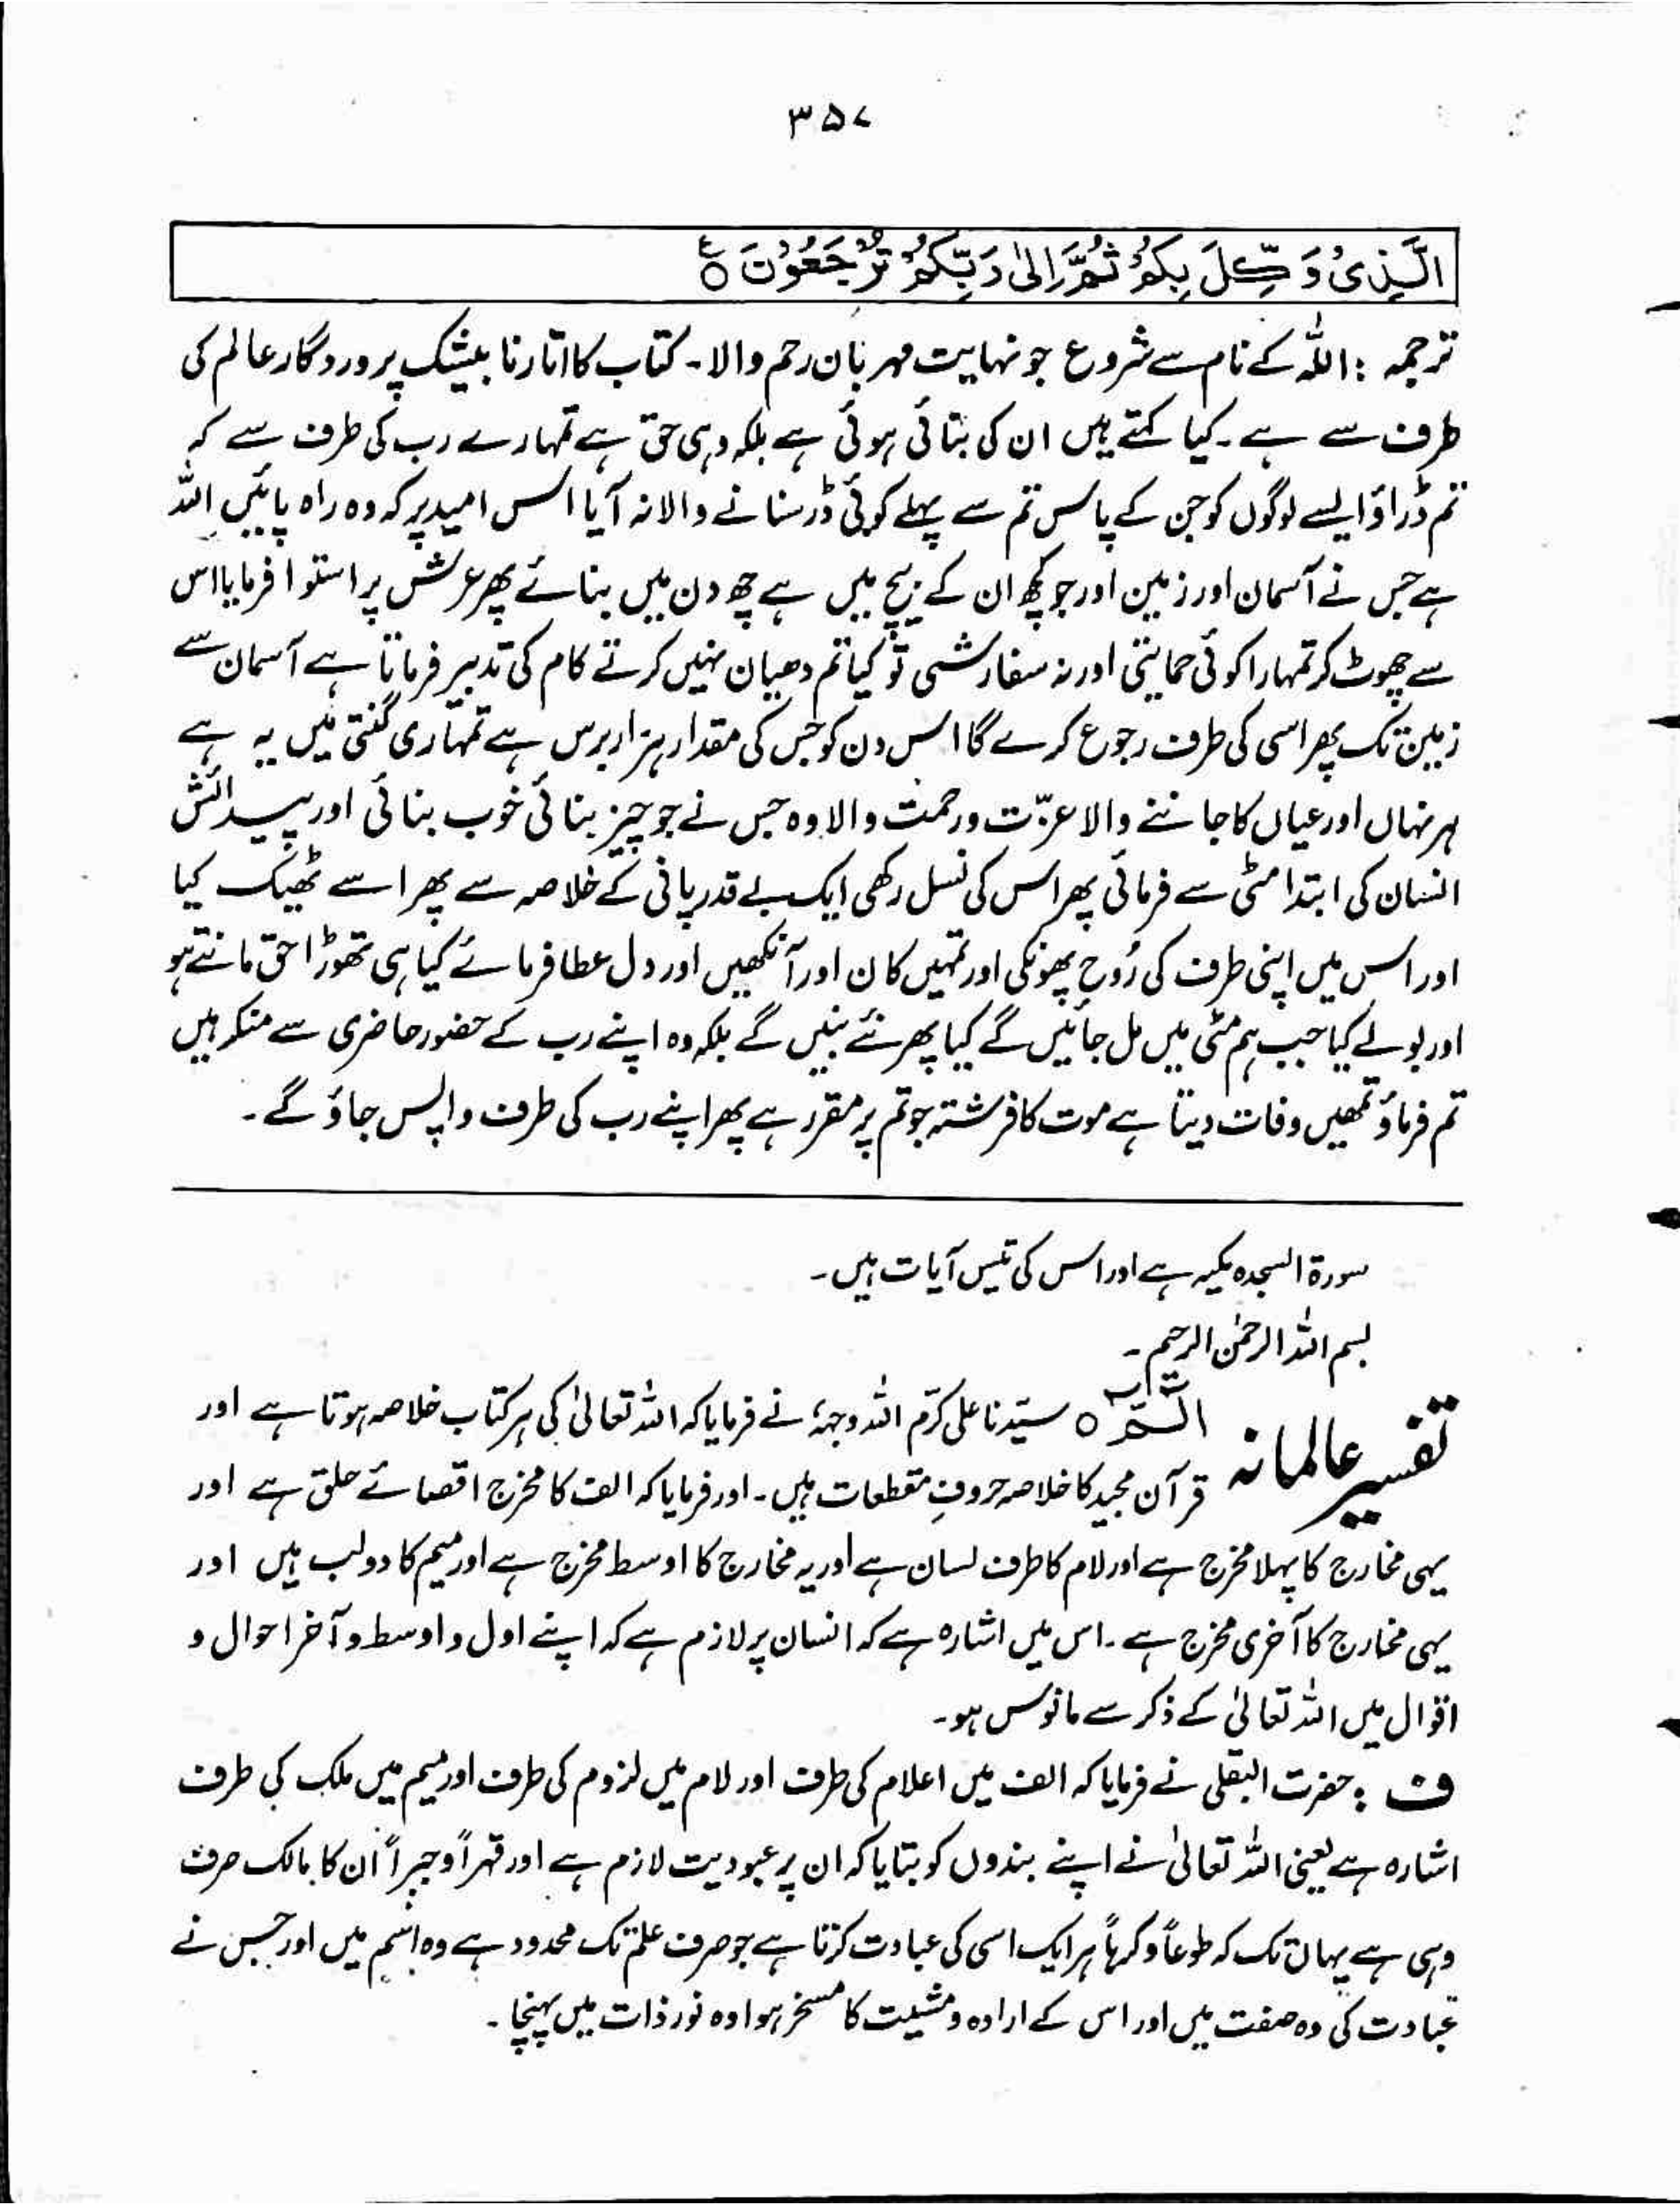 ۳۵۷
الَّذِیْ وُكِّلَ بِكُمْ ثُمَّ اِلٰی رَبِّكُمْ تُرْجَعُوْنَ ۝ ع
ترجمہ : اللہ کے نام سے شروع جو نہایت مہربان رحم والا ۔ کتاب کا اتارنا بیشک پروردگار عالم کی
طرف سے ہے ۔ کیا کہتے ہیں ان کی بنائی ہوئی ہے بلکہ وہی حق ہے تمہارے رب کی طرف سے کہ
تم ڈراؤ ایسے لوگوں کو جن کے پاس تم سے پہلے کوئی ڈر سنانے والا نہ آیا اس امید پر کہ وہ راہ پائیں اللہ
ہے جس نے آسمان اور زمین اور جو کچھ ان کے بیچ میں ہے چھ دن میں بنائے پھر عرش پر استوا فرمایا اس
سے چھوٹ کر تمہارا کوئی حمایتی اور نہ سفارشی تو کیا تم دھیان نہیں کرتے کام کی تدبیر فرماتا ہے آسمان سے
زمین تک پھر اسی کی طرف رجوع کرے گا اس دن کو جس کی مقدار ہزار برس ہے تمہاری گنتی میں یہ ہے
ہر نہاں اور عیاں کا جاننے والا عزّت و رحمت والا وہ جس نے جو چیز بنائی خوب بنائی اور پیدائش
انسان کی ابتدا مٹی سے فرمائی پھر اس کی نسل رکھی ایک بے قدر پانی کے خلاصہ سے پھر اسے ٹھیک کیا
اور اس میں اپنی طرف کی رُوح پھونکی اور تمہیں کان اور آنکھیں اور دل عطا فرمائے کیا ہی تھوڑا حق مانتے ہو
اور بولے کیا جب ہم مٹی میں مل جائیں گے کیا پھر نئے بنیں گے بلکہ وہ اپنے رب کے حضور حاضری سے منکر ہیں
تم فرماؤ تمھیں وفات دیتا ہے موت کا فرشتہ جو تم پر مقرر ہے پھر اپنے رب کی طرف واپس جاؤ گے ۔
سورۃ السجدہ مکیہ ہے اور اس کی تیس آیات ہیں ۔
بسم اللہ الرحمٰن الرحیم ۔
تفسیر عالمانہ الٓمّٓ ۝ سیّدنا علی کرّم اللہ وجہہٗ نے فرمایا کہ اللہ تعالیٰ کی ہر کتاب خلاصہ ہوتا ہے اور
قرآن مجید کا خلاصہ حروفِ مقطعات ہیں ۔ اور فرمایا کہ الف کا مخرج اقصائے حلق ہے اور
یہی مخارج کا پہلا مخرج ہے اور لام کا طرف لسان ہے اور یہ مخارج کا اوسط مخرج ہے اور میم کا دو لب ہیں اور
یہی مخارج کا آخری مخرج ہے ۔ اس میں اشارہ ہے کہ انسان پر لازم ہے کہ اپنے اول و اوسط و آخر احوال و
اقوال میں اللہ تعالیٰ کے ذکر سے مانوس ہو ۔
ف : حضرت البقلی نے فرمایا کہ الف میں اعلام کی طرف اور لام میں لزوم کی طرف اور میم میں ملک کی طرف
اشارہ ہے یعنی اللہ تعالیٰ نے اپنے بندوں کو بتایا کہ ان پر عبودیت لازم ہے اور قہراً وجبراً اُن کا مالک صرف
وہی ہے یہاں تک کہ طوعاً وکرہاً ہر ایک اسی کی عبادت کرتا ہے جو صرف علم تک محدود ہے وہ اسم میں اور جس نے
عبادت کی وہ صفت میں اور اس کے ارادہ و مشیت کا مسخر ہوا وہ نور ذات میں پہنچا ۔